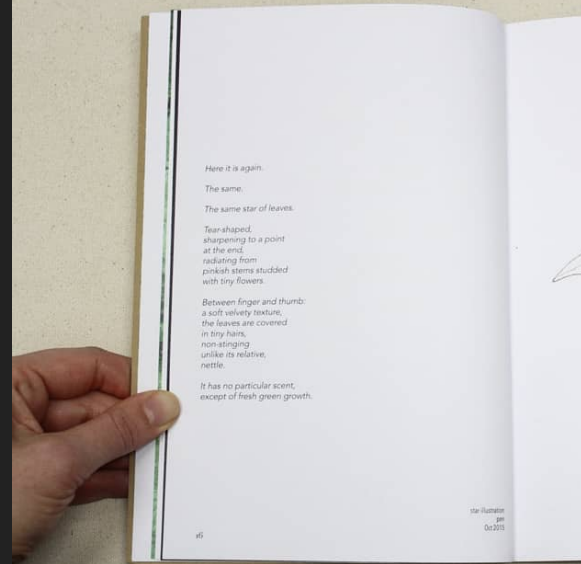 Here it is again.
The same.
The same star of leaves.
Tear-shaped,
sharpening to a point
at the end,
radiating from
pinkish stems studded
with tiny flowers.
Between finger and thumb:
a soft velvety texture,
the leaves are covered
in tiny hairs,
non-stinging
unlike its relative,
nettle.
It has no particular scent,
except of fresh green growth.
star-illustration
pen
Oct 2015